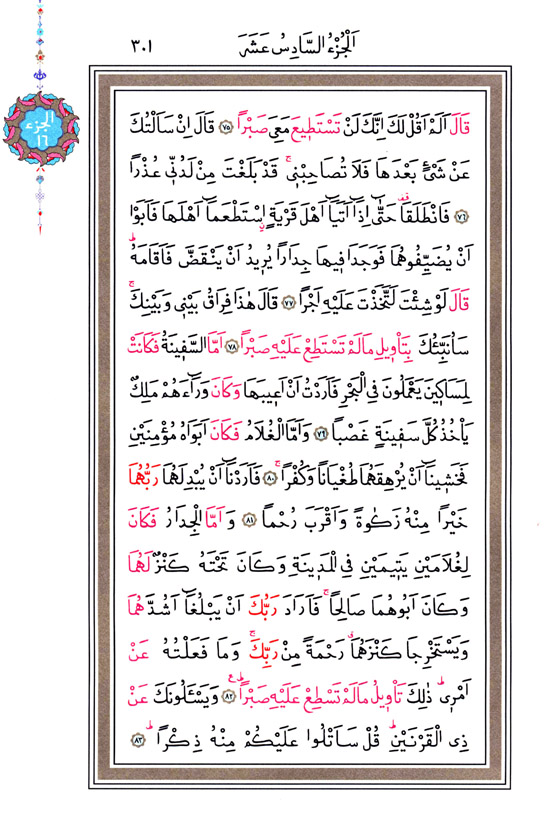 اَلْجُزْءُ السَّادِسُ عَشَرَ
٣٠١
الجزء
١٦
قَالَ اَلَمْ اَقُلْ لَكَ اِنَّكَ لَنْ تَسْتَطِيعَ مَعِيَ صَبْرًا ﴿٧٥﴾ قَالَ اِنْ سَاَلْتُكَ
عَنْ شَیْءٍ بَعْدَهَا فَلَا تُصَاحِبْنٖيۚ قَدْ بَلَغْتَ مِنْ لَدُنّٖي عُذْرًا
﴿٧٦﴾ فَانْطَلَقَا۠ حَتّٰٓى اِذَٓا اَتَيَٓا اَهْلَ قَرْيَةٍۨ اسْتَطْعَمَٓا اَهْلَهَا فَاَبَوْا
اَنْ يُضَيِّفُوهُمَا فَوَجَدَا فٖيهَا جِدَارًا يُرٖيدُ اَنْ يَنْقَضَّ فَاَقَامَهُؕ
قَالَ لَوْ شِئْتَ لَتَّخَذْتَ عَلَيْهِ اَجْرًا ﴿٧٧﴾ قَالَ هٰذَا فِرَاقُ بَيْنٖي وَبَيْنِكَۚ
سَاُنَبِّئُكَ بِتَاْوٖيلِ مَا لَمْ تَسْتَطِعْ عَلَيْهِ صَبْرًا ﴿٧٨﴾ اَمَّا السَّفٖينَةُ فَكَانَتْ
لِمَسَاكٖينَ يَعْمَلُونَ فِي الْبَحْرِ فَاَرَدْتُ اَنْ اَعٖيبَهَا وَكَانَ وَرَٓاءَهُمْ مَلِكٌ
يَاْخُذُ كُلَّ سَفٖينَةٍ غَصْبًا ﴿٧٩﴾ وَاَمَّا الْغُلَامُ فَكَانَ اَبَوَاهُ مُؤْمِنَيْنِ
فَخَشٖينَٓا اَنْ يُرْهِقَهُمَا طُغْيَانًا وَكُفْرًاۚ ﴿٨٠﴾ فَاَرَدْنَٓا اَنْ يُبْدِلَهُمَا رَبُّهُمَا
خَيْرًا مِنْهُ زَكٰوةً وَاَقْرَبَ رُحْمًا ﴿٨١﴾ وَاَمَّا الْجِدَارُ فَكَانَ
لِغُلَامَيْنِ يَتٖيمَيْنِ فِي الْمَدٖينَةِ وَكَانَ تَحْتَهُ كَنْزٌ لَهُمَا
وَكَانَ اَبُوهُمَا صَالِحًاۚ فَاَرَادَ رَبُّكَ اَنْ يَبْلُغَٓا اَشُدَّهُمَا
وَيَسْتَخْرِجَا كَنْزَهُمَاۗ رَحْمَةً مِنْ رَبِّكَۚ وَمَا فَعَلْتُهُ عَنْ
اَمْرٖيؕ ذٰلِكَ تَاْوٖيلُ مَا لَمْ تَسْطِعْ عَلَيْهِ صَبْرًاؕ ﴿٨٢﴾ وَيَسْـَٔلُونَكَ عَنْ
ذِي الْقَرْنَيْنِؕ قُلْ سَاَتْلُوا عَلَيْكُمْ مِنْهُ ذِكْرًاؕ ﴿٨٣﴾